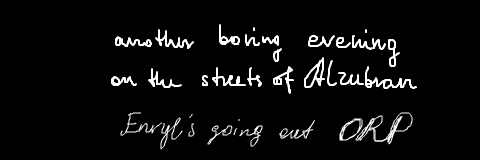 another boring evening
on the streets of Alzubran
Enryl's going out ORP